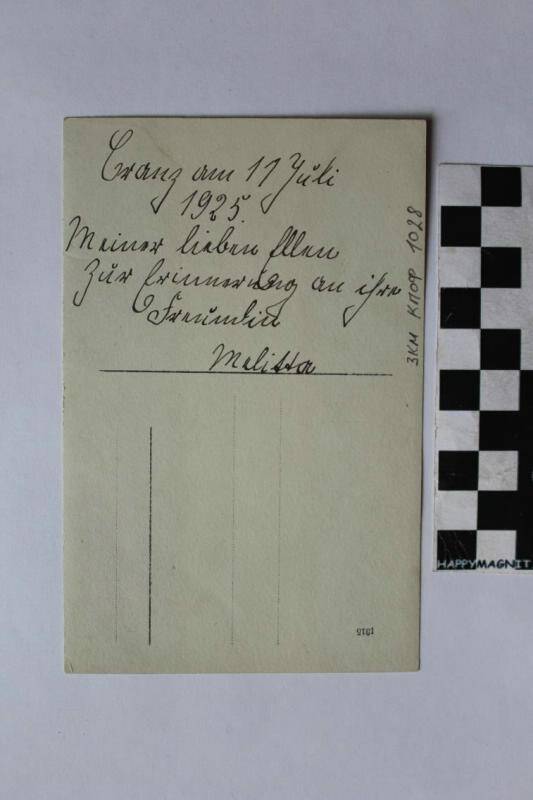 Cranz am 11 Juli
1925.
Meiner lieben Ellen
zur Erinnerung an ihre
Freundin
Melitta
ЗКМ КПОФ 1028
1915
HAPPYMAGNIT